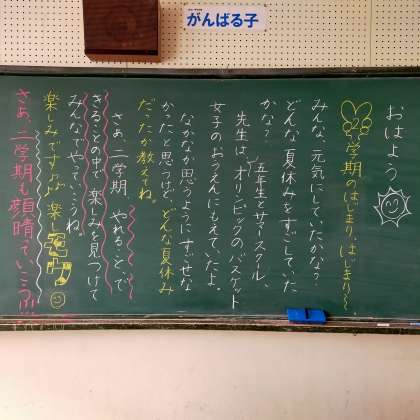 がんばる子
おはよう
2学期のはじまり、はじまり〜。
みんな、元気にしていたかな?
どんな夏休みをすごしていた
かな?
先生は、五年生とサマースクール、
オリンピックのバスケット
女子のおうえんにもえていたよ。
なかなか思うようにすごせな
かったと思うけど、どんな夏休み
だったか教えてね。
さぁ、二学期、やれること、で
きることの中で楽しみを見つけて
みんなでやっていこうね。
楽しみです♪♪楽し
さぁ、二学期も顔晴っていこう!!!